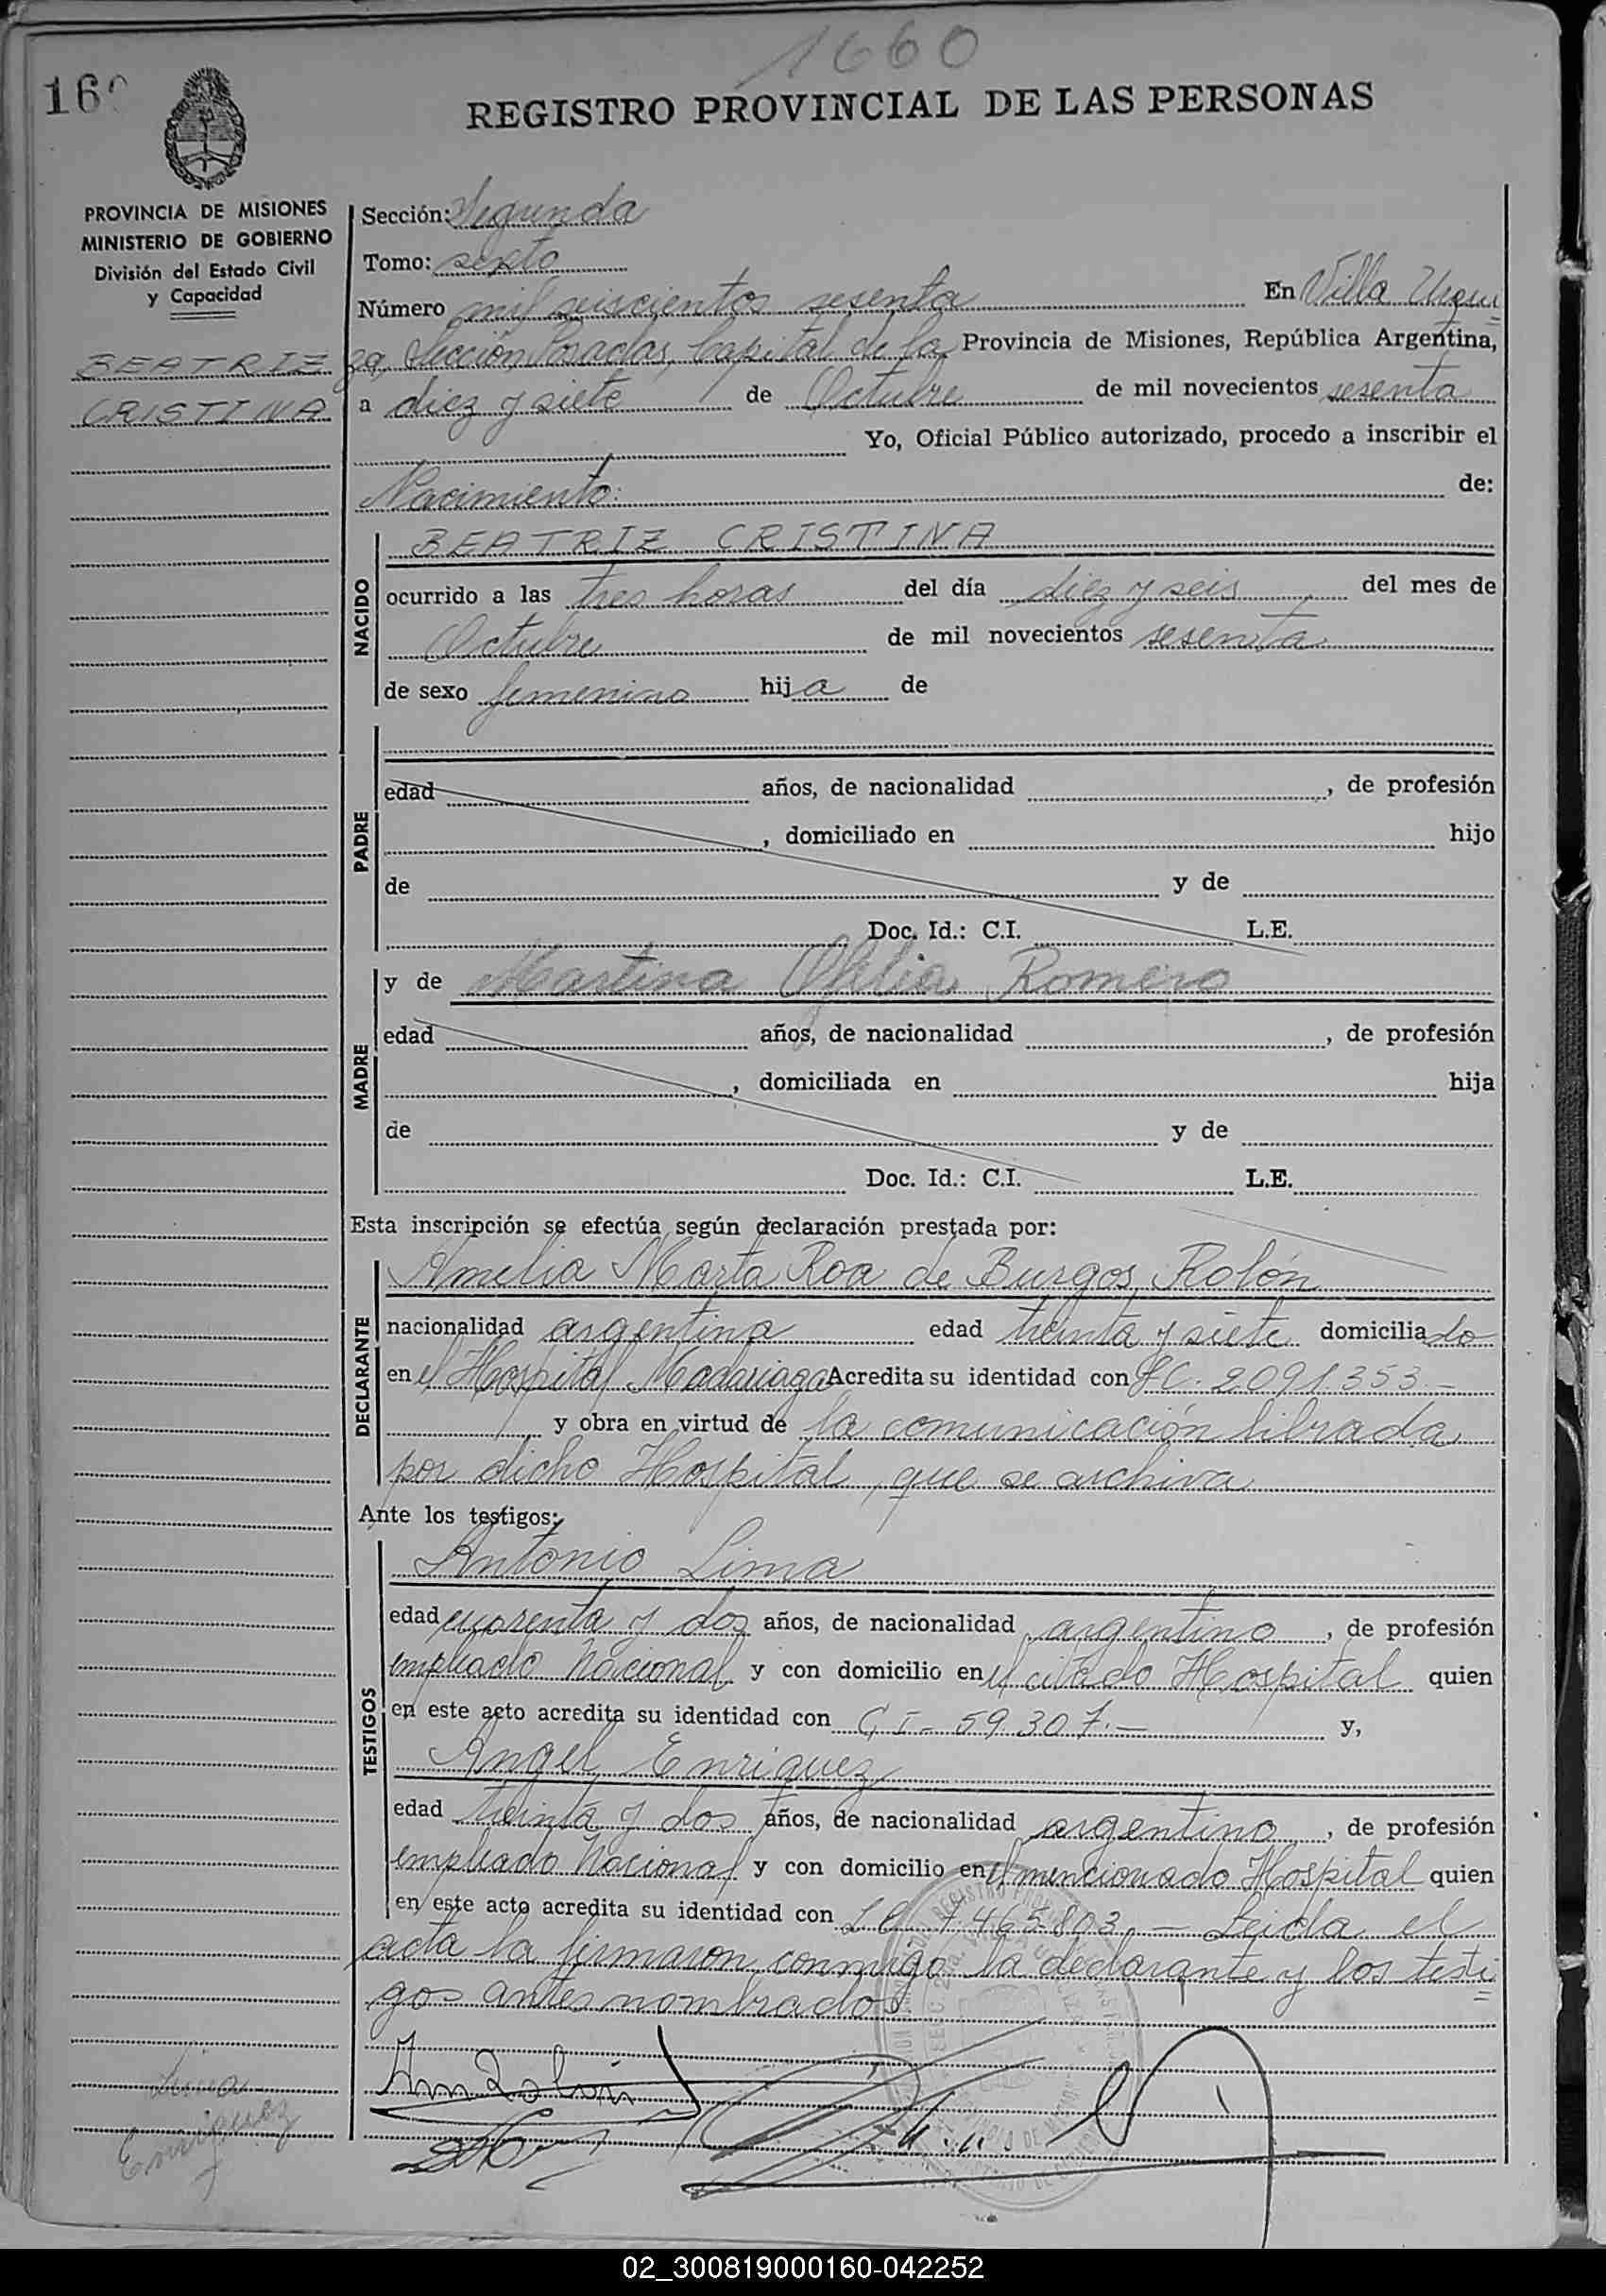 1660
160
REGISTRO PROVINCIAL DE LAS PERSONAS
PROVINCIA DE MISIONES
MINISTERIO DE GOBIERNO
División del Estado Civil
y Capacidad
BEATRIZ
CRISTINA
Sección: Segunda
Tomo: sexto
Número mil seiscientos sesenta En Villa Urqui
za, Sección Posadas, Capital de la Provincia de Misiones, República Argentina,
a diez y siete de Octubre de mil novecientos sesenta
Yo, Oficial Público autorizado, procedo a inscribir el
Nacimiento de:
NACIDO
BEATRIZ CRISTINA
ocurrido a las tres horas del día diez y seis del mes de
Octubre de mil novecientos sesenta
de sexo femenino hija de
PADRE
edad años, de nacionalidad , de profesión
, domiciliado en hijo
de y de
Doc. Id.: C.I. L.E.
MADRE
y de Martina Ofelia Romero
edad años, de nacionalidad , de profesión
, domiciliada en hija
de y de
Doc. Id.: C.I. L.E.
Esta inscripción se efectúa según declaración prestada por:
DECLARANTE
Amelia Marta Roa de Burgos Rolón
nacionalidad argentina edad treinta y siete domiciliado
en el Hospital Madariaga Acredita su identidad con 2091.353.-
y obra en virtud de la comunicación librada
por dicho Hospital, que se archiva
Ante los testigos:
TESTIGOS
Antonio Lima
edad cuarenta y dos años, de nacionalidad argentino, de profesión
empleado Nacional y con domicilio en el citado Hospital quien
en este acto acredita su identidad con C.I.- 59307.- y,
Angel Enriquez
edad treinta y dos años, de nacionalidad argentino, de profesión
empleado Nacional y con domicilio en el mencionado Hospital quien
en este acto acredita su identidad con 7465.803.- Leida el
acta la firmaron conmigo la declarante y los testi
gos antes nombrados
Lima
Enriquez
02_300819000160-042252